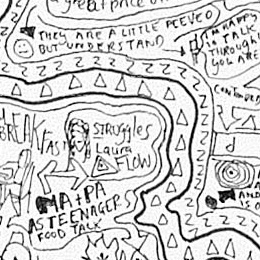 great price
THEY ARE A LITTLE PEEVED
BUT UNDERSTAND
I'M HAPPY
TO TALK
THROUGH
YOU ARE
BREAK
FAST
STRUGGLES
Laura
FLOW
d
MA + PA
AS TEENAGERS
FOOD TALK
AND